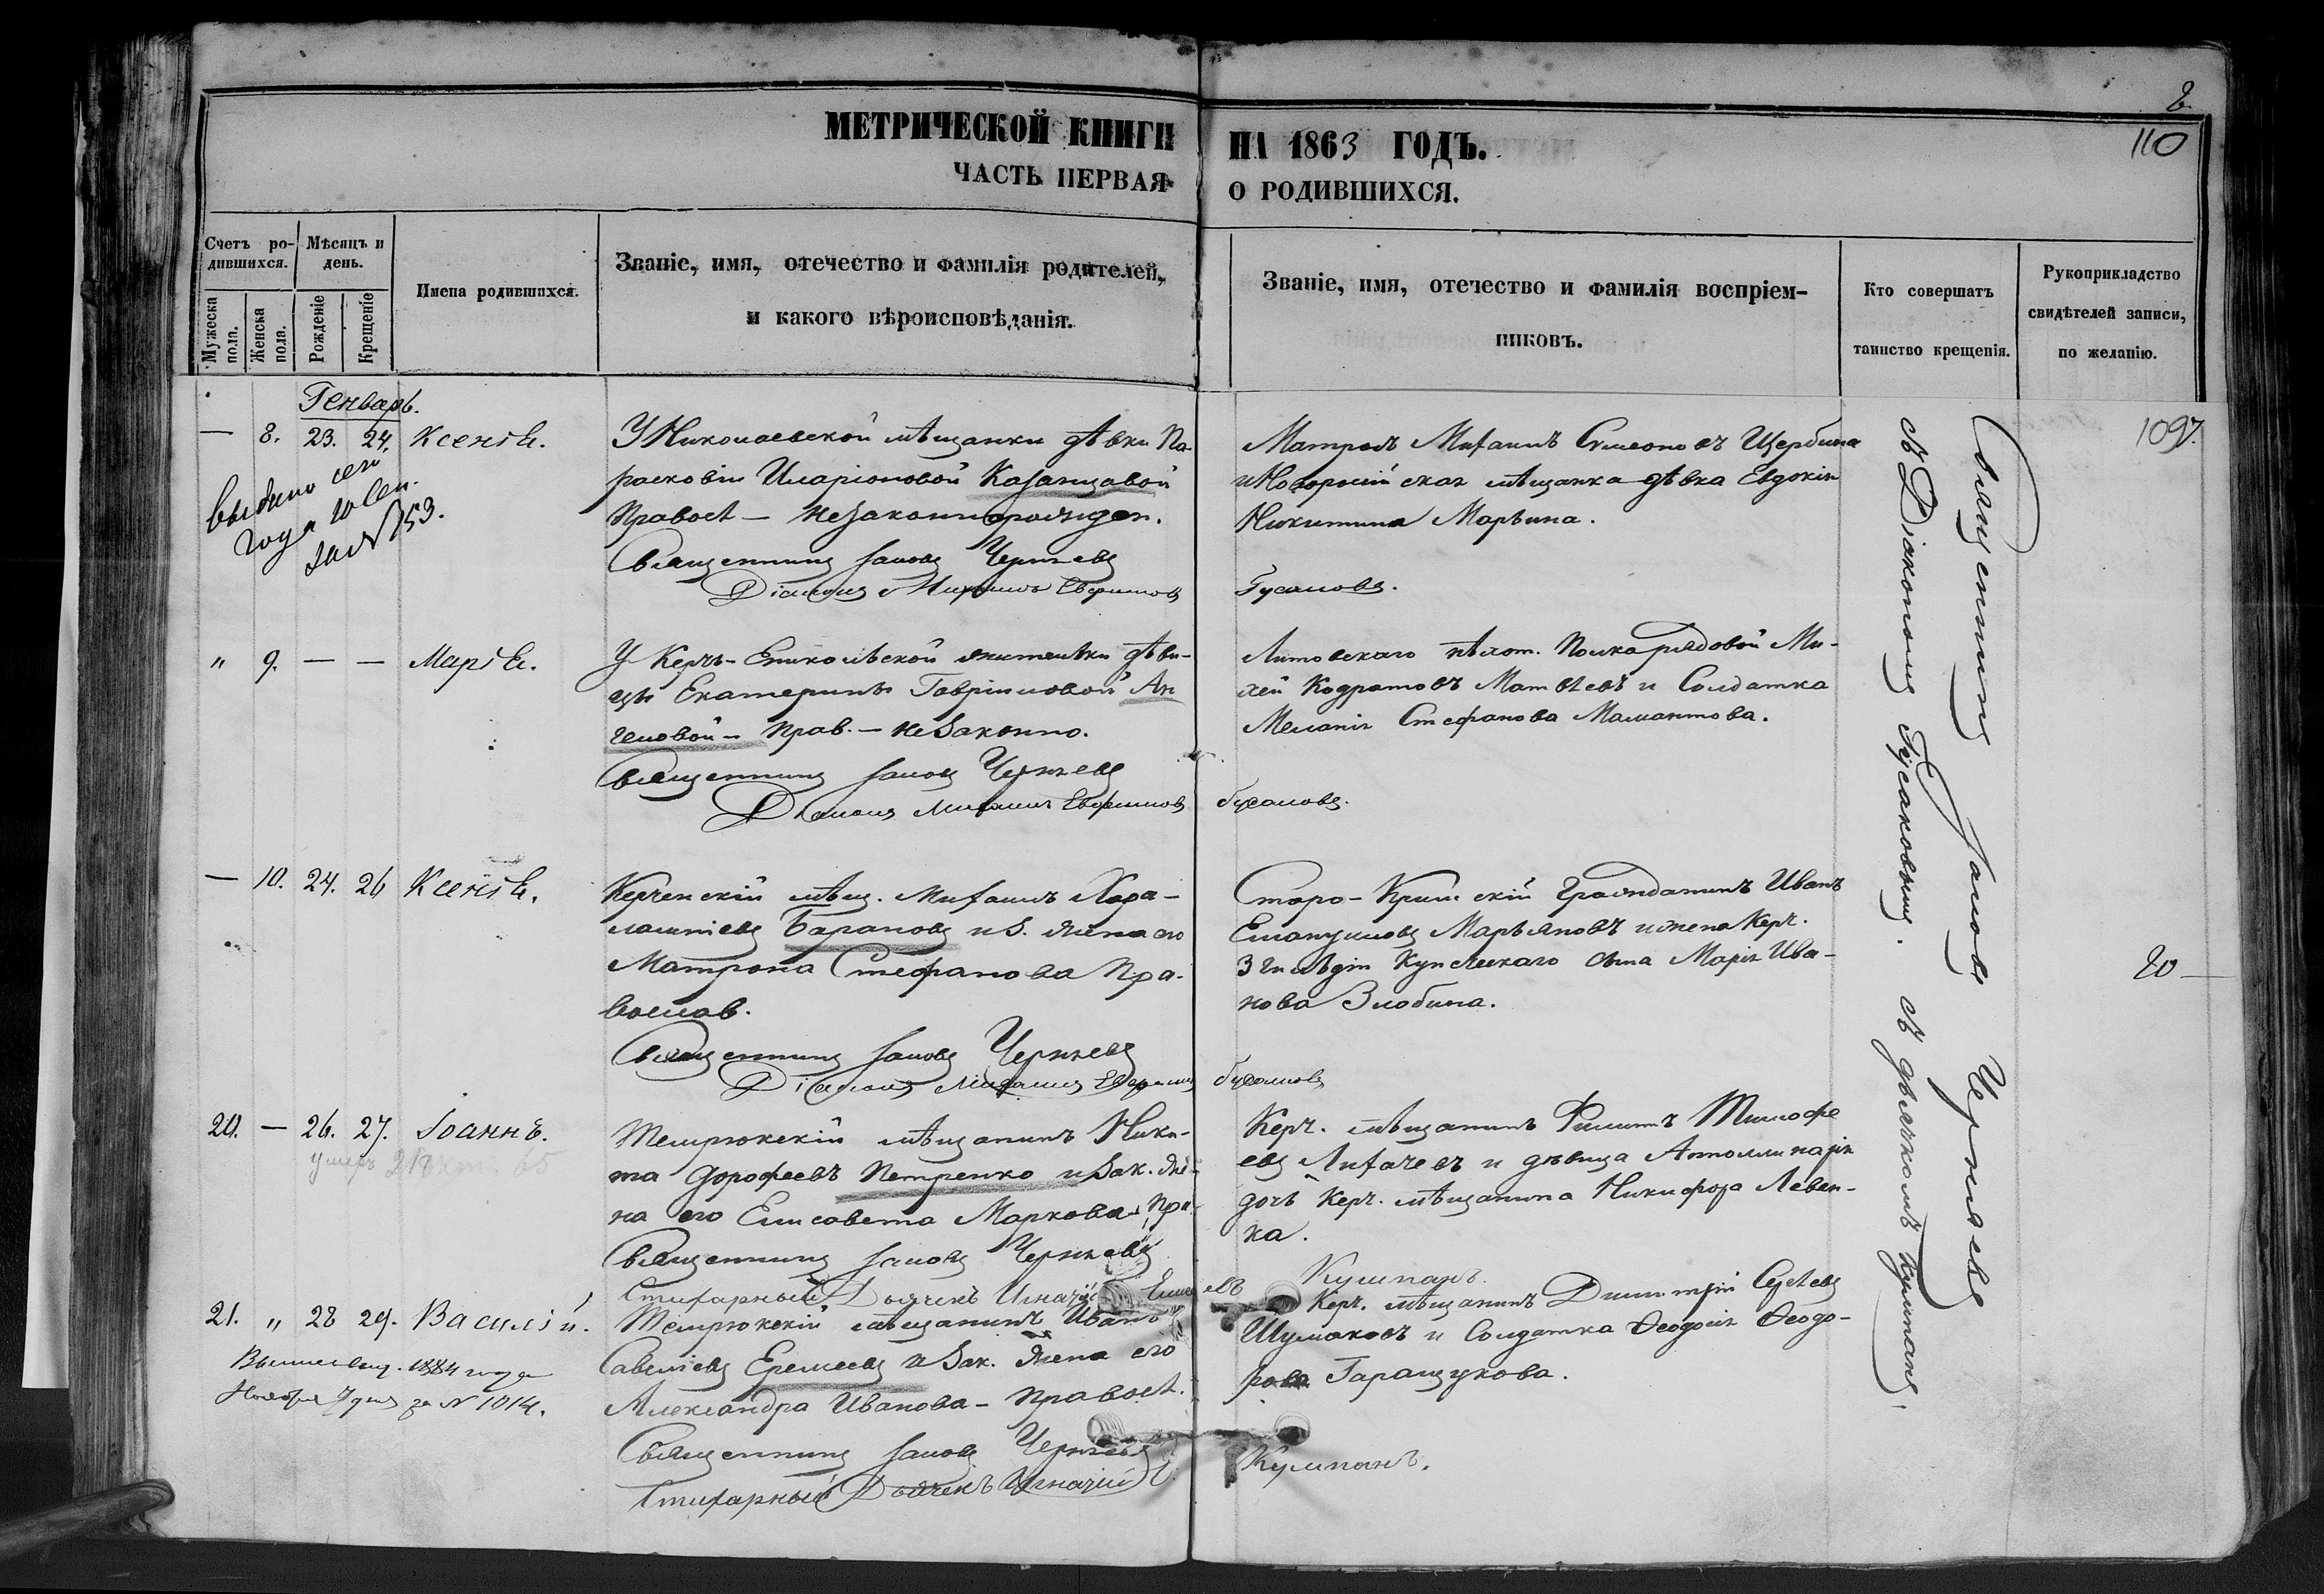 8
МЕТРИЧЕСКОЙ КНИГИ НА 1863 ГОДЪ.
110
ЧАСТЬ ПЕРВАЯ О РОДИВШИХСЯ.
Счетъ родившихся.
Мѣсяцъ и день.
Мужеска пола.
Женска пола.
Рожденіе
Крещеніе
Имена родившихся.
Званіе, имя, отечество и фамилія родителей,
и какого вѣроисповѣданія.
Званіе, имя, отечество и фамилія воспріем-
никовъ.
Кто совершатъ
таинство крещенія.
Рукоприкладство
свидѣтелей записи,
по желанію.
Генварь.
— 8. 23. 24. Ксенія.
Выдано сего
года
за № 153.
У Николаевской мѣщанки дѣвки Па-
расковіи Иларіоновой Казанцавой
Правосл — незаконнорожден.
Священникъ Іаковъ Черняевъ
Діаконъ Михаилъ Евфимовъ Гусаковъ.
Матросъ Михаилъ Симеоновъ Щербина
и Новоросійская мѣщанка дѣвка Евдокія
Никитина Марьина.
1097.
" 9. — — Марія.
У Керчь-Еникольской жительки дѣви-
цы Екатерины Гавріиловой Ан
геловой — Прав. — Незаконно.
Священникъ Іаковъ Черняевъ
Діаконъ Михаилъ Евфимовъ Гусаковъ.
Литовскаго пѣхот. Полка рядовой Ми-
хей Кодратовъ Матвѣевъ и Солдатка
Меланія Стефанова Мамантова.
— 10. 24. 26 Ксенія.
Керченскій мѣщ. Михаилъ Хара-
лампіевъ Барановъ и З. жена его
Матрона Стефанова Пра-
вослав.
Священникъ Іаковъ Черняевъ
Діаконъ Михаилъ Евфимовъ Гусаковъ
Старо-Крымскій Гражданинъ Иванъ
Емануиловъ Марьяновъ и жена Керч.
3 Гильдіи Купеческаго сына Марія Ива-
нова Злобина.
20 —
20. — 26. 27. Іоаннъ.
умеръ 65
Темрюкскій мѣщанинъ Ники-
та Дорофеевъ Петренко и Зак. же-
на его Елисавета Маркова — Пра.
Священникъ Іаковъ Черняевъ
Стихарный Дьячекъ Игнатій Кумпанъ.
Керч. мѣщанинъ Филипъ Тимофе
евъ Лихачевъ и дѣвица Апполлинарія
дочь Керч. мѣщанина Никифора Левен-
ка.
21. " 28 29. Василій.
1884 года
Ноября 7 дня за № 1014.
Темрюкскій мѣщанинъ Иванъ
Савеліевъ Еремеевъ и Зак. жена его
Александра Иванова — Правосл.
Священникъ Іаковъ Черняевъ
Стихарный Дьячекъ Игнатій Кумпанъ.
Керч. мѣщанинъ Димитрій Сергѣевъ
Шумаковъ и Солдатка Ѳеодосія Ѳеодо-
рова Гаращукова.
Священникъ Іаковъ Черняевъ
съ Діакономъ Гусаковымъ. съ дьячкомъ Кумпанъ.